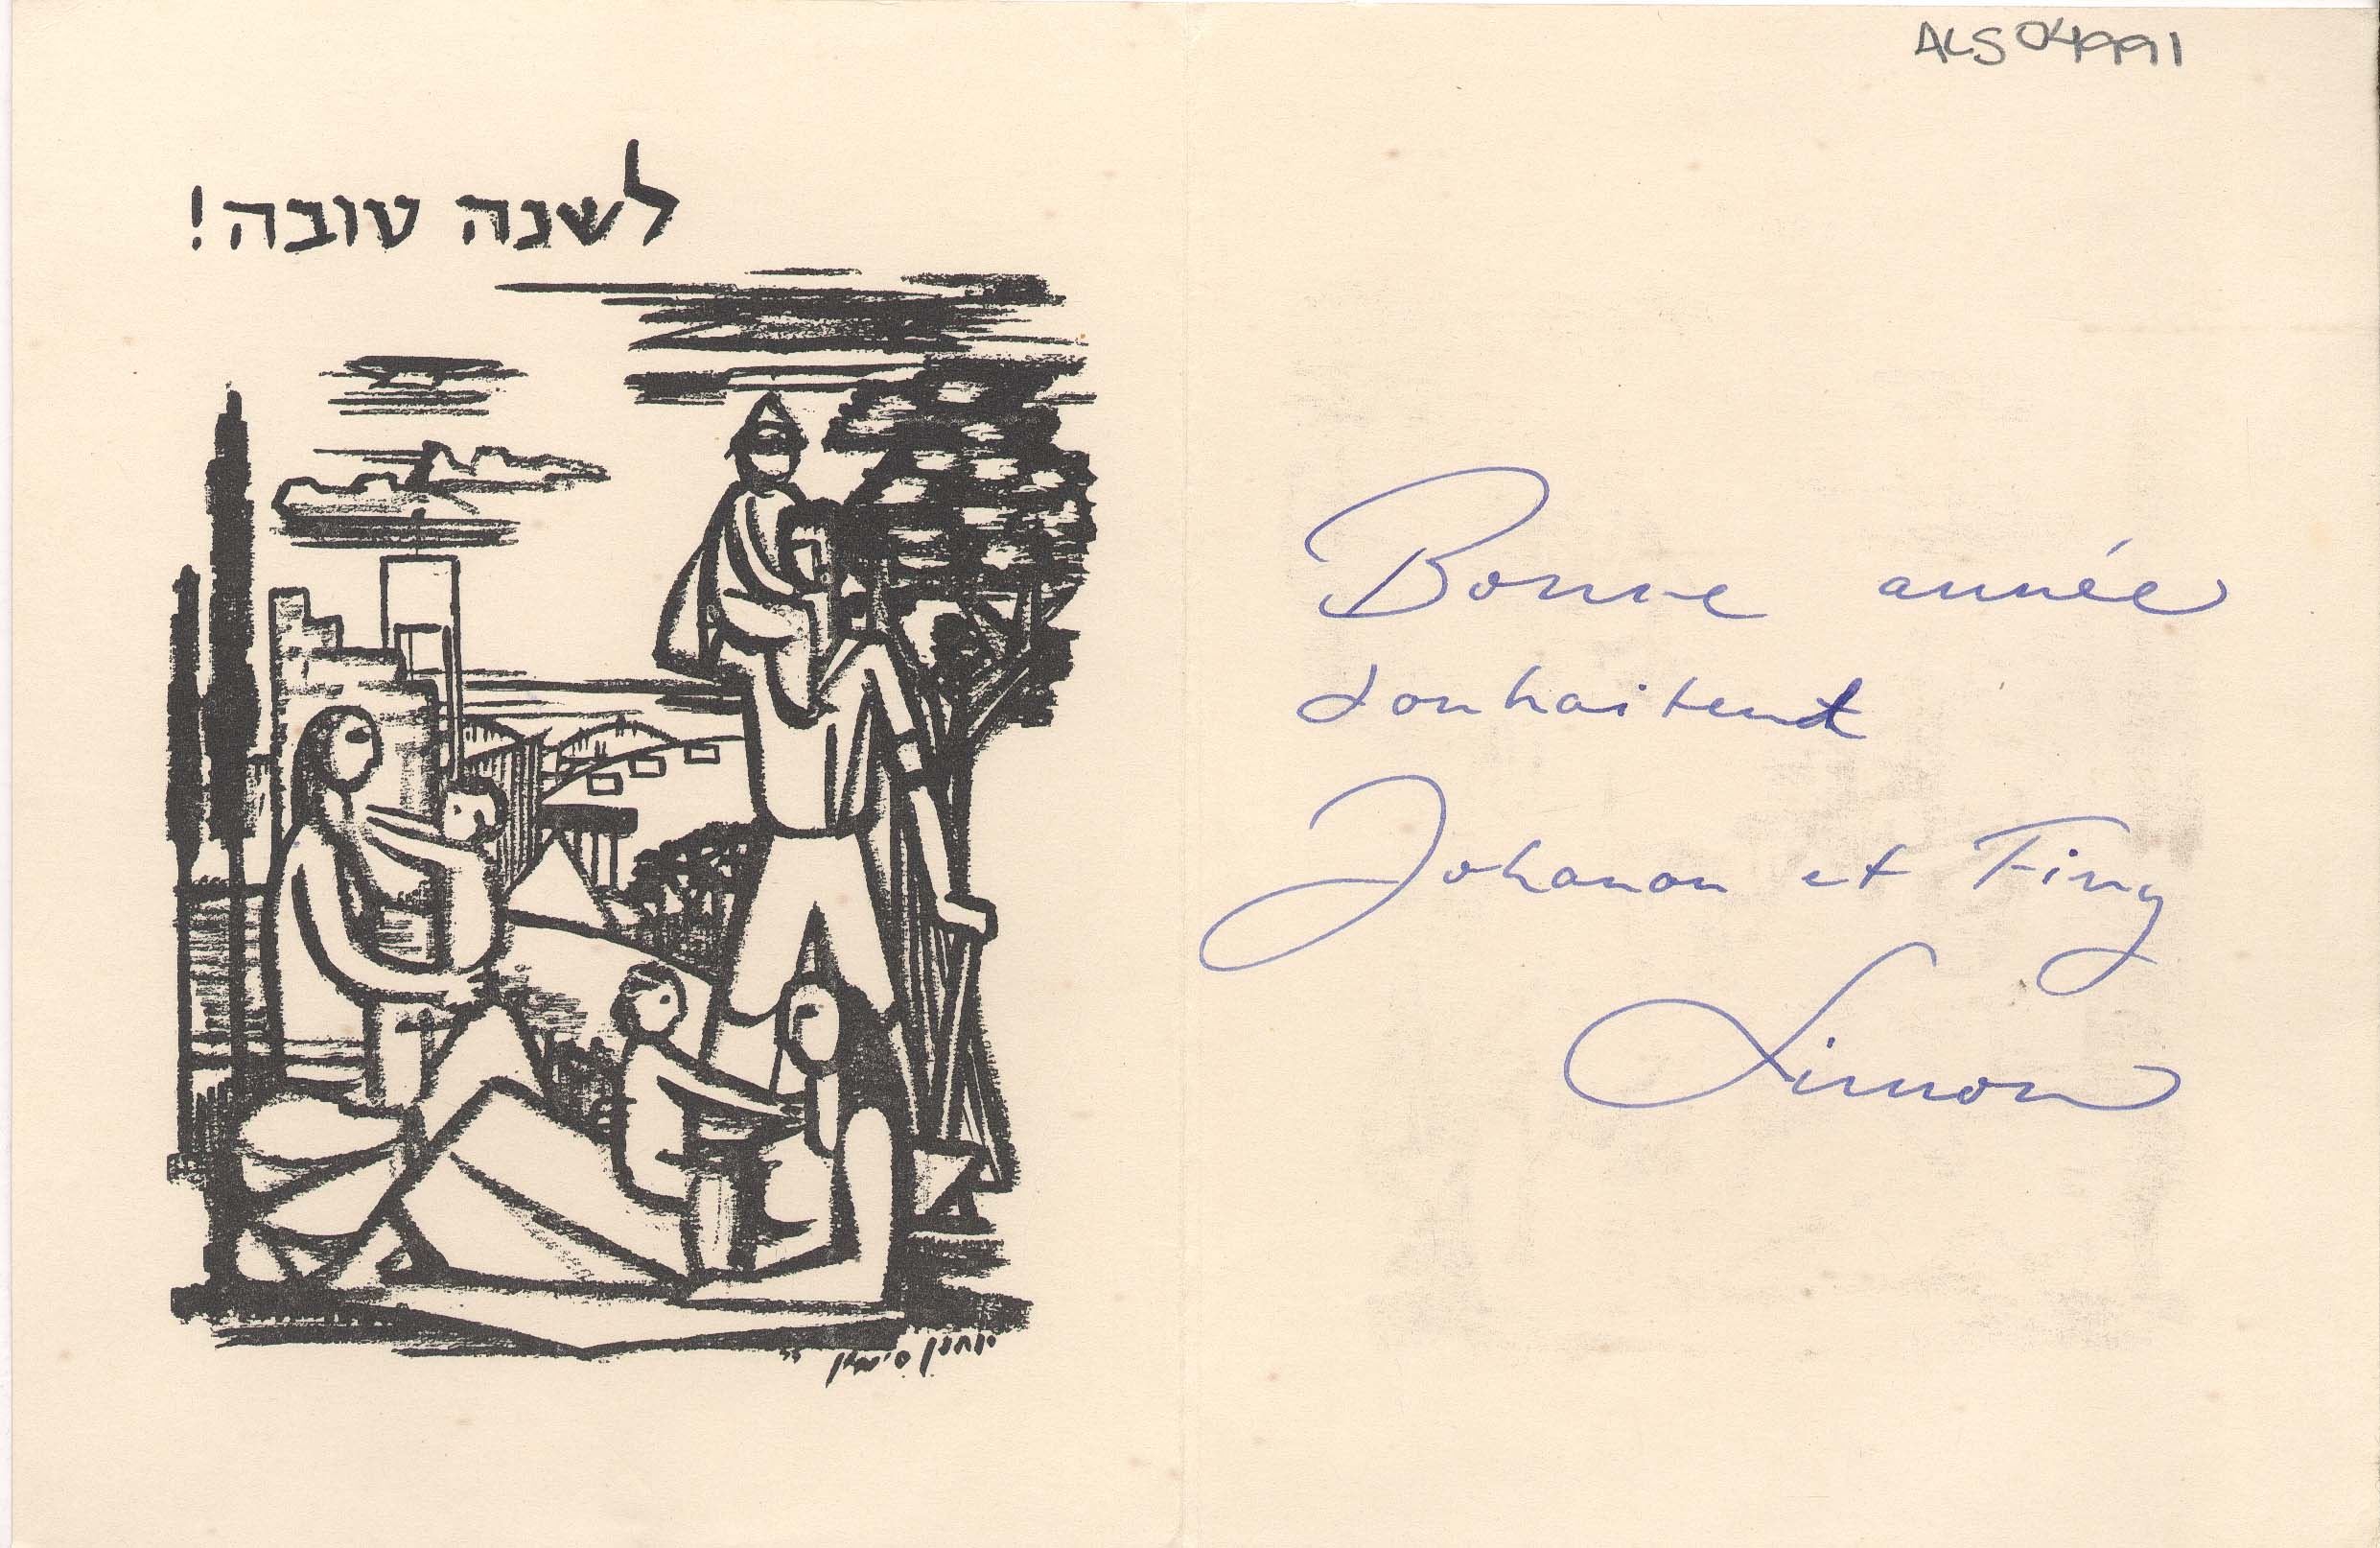 ALS 04991
לשנה טובה!
יוחנן סימון
Bonne année
souhaitent
Johanan et Finy
Simon